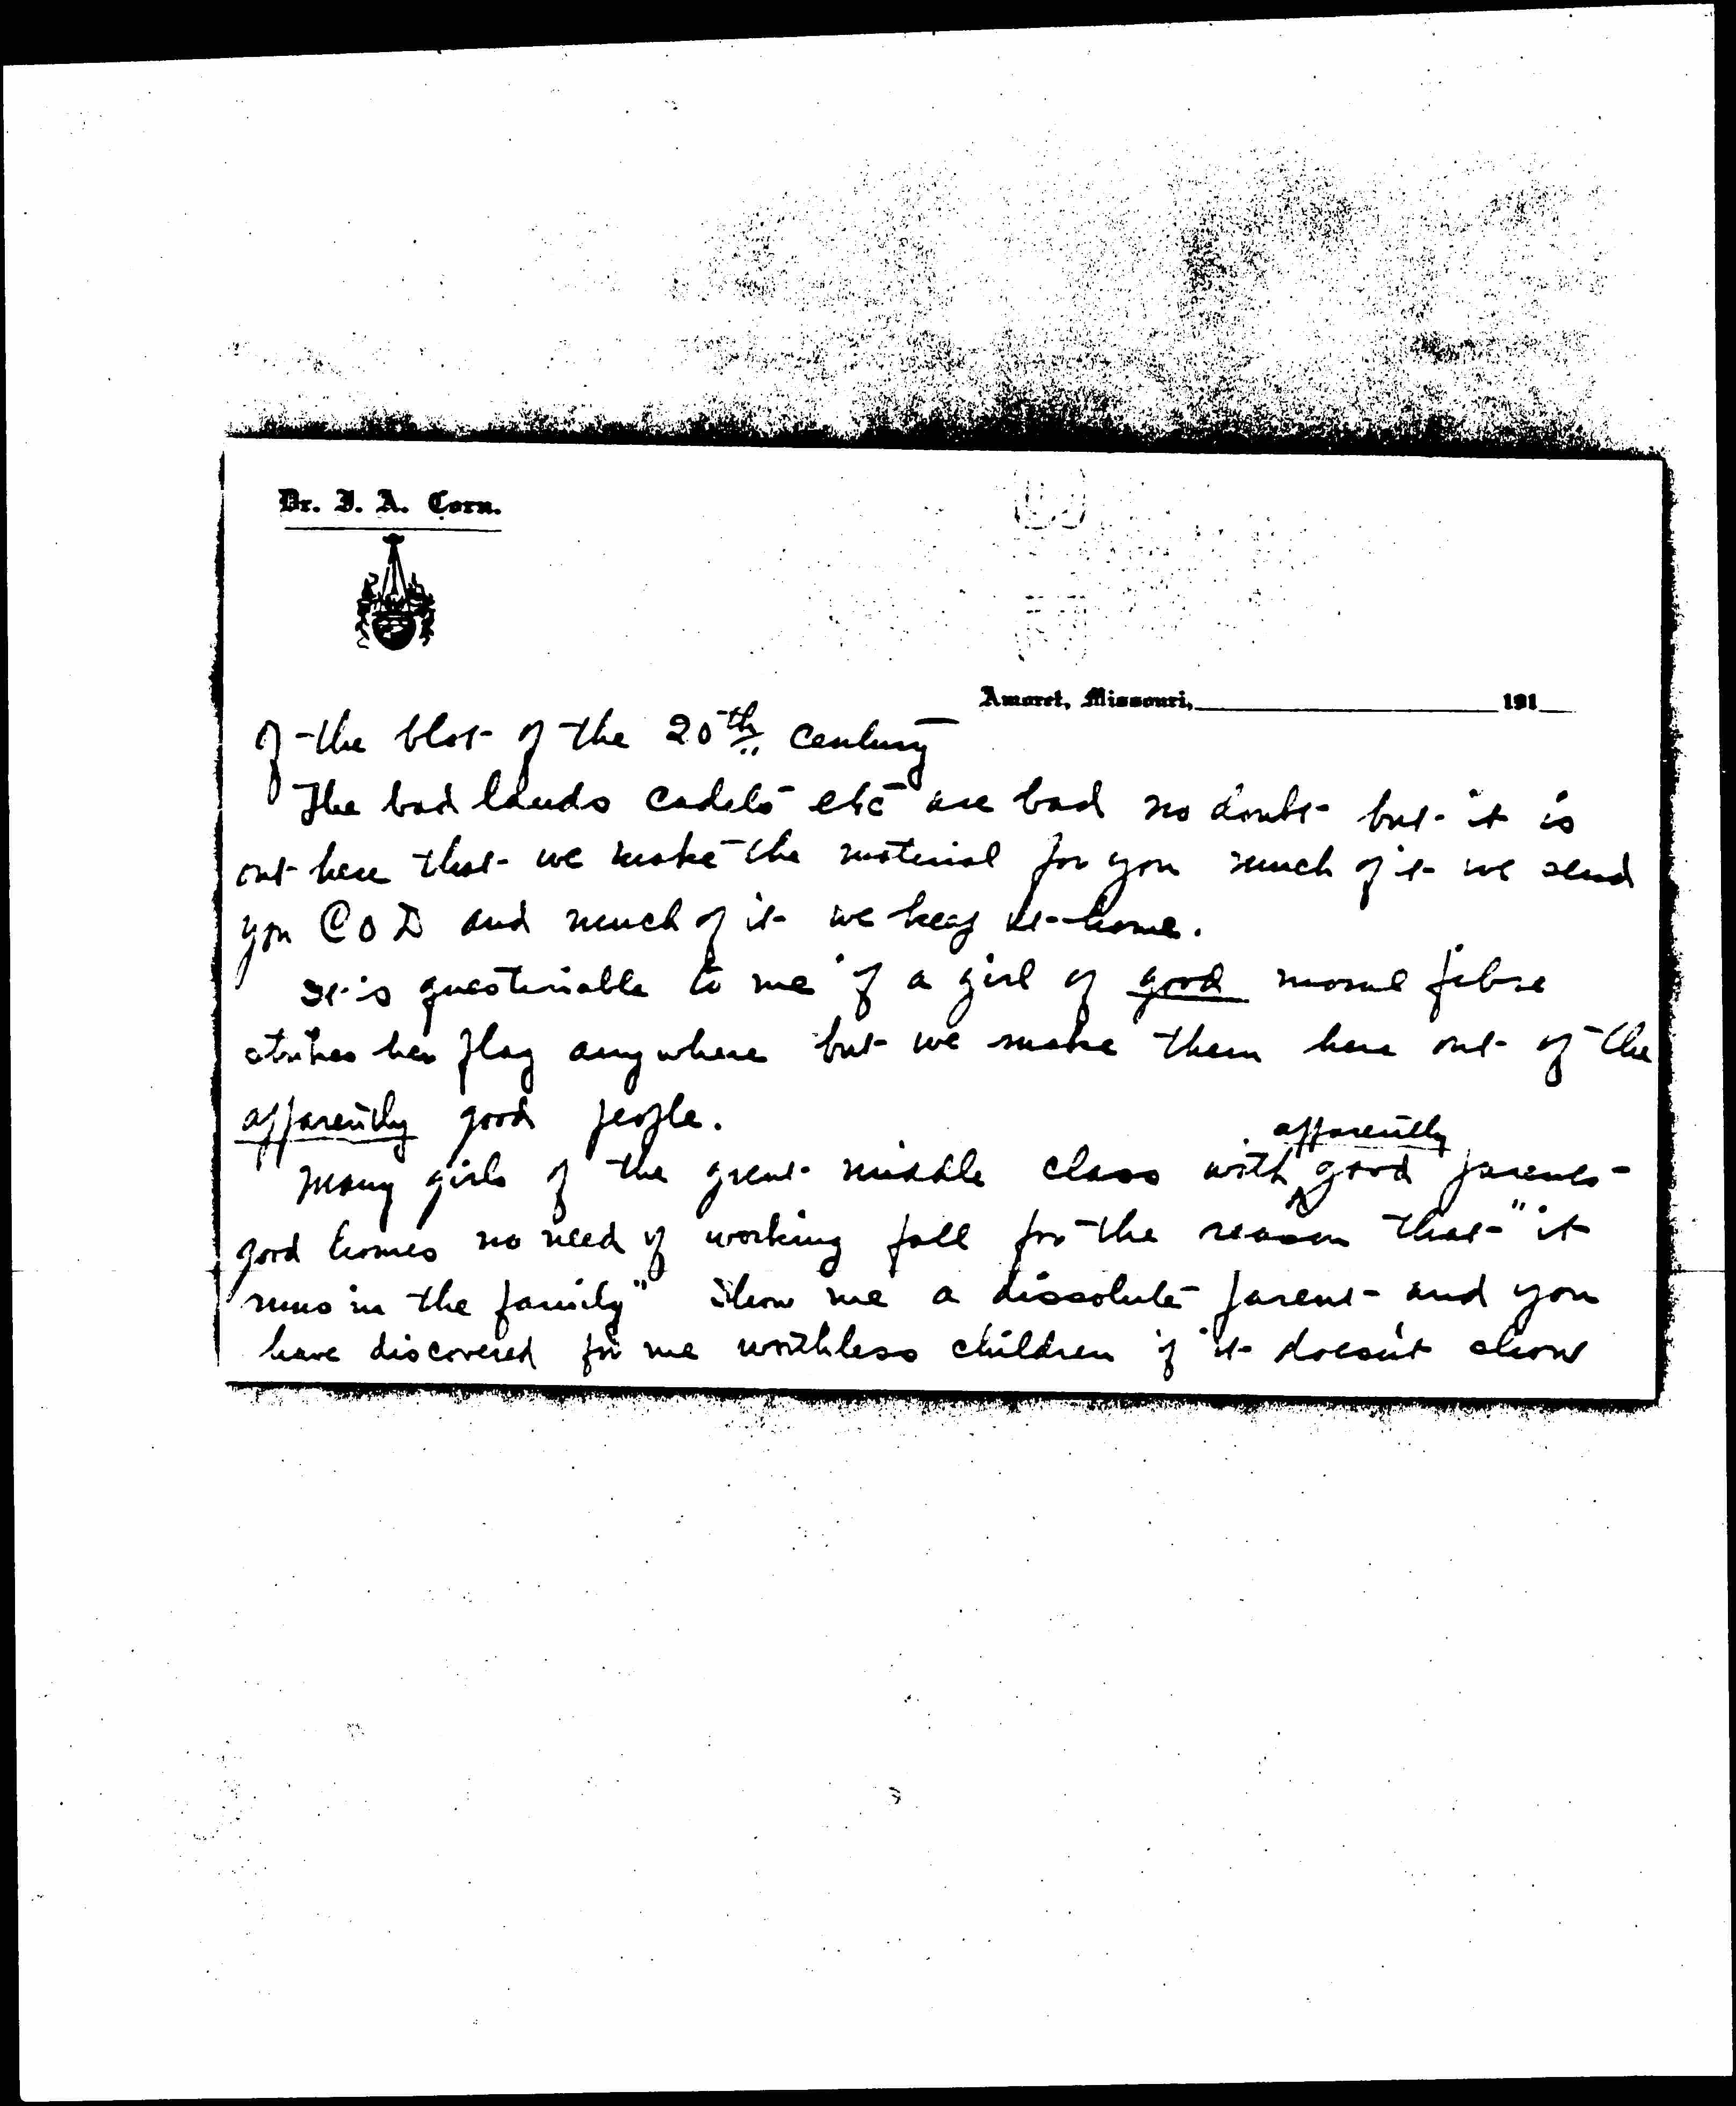 Dr. J. A. Corn.
Amoret, Missouri, 191
of the blot of the 20th century
The bad lands cadets etc are bad no doubt but it is
out here that we make the material for you much of it we send
you C O D and much of it we keep at home.
It is questionable to me if a girl of good moral fibre
strikes her flag anywhere but we make them here out of the
apparently good people.
Many girls of the great middle class with apparently good parents
good homes no need of working fall for the reason that "it
runs in the family" Show me a dissolute parent and you
have discovered for me worthless children if it doesn't show